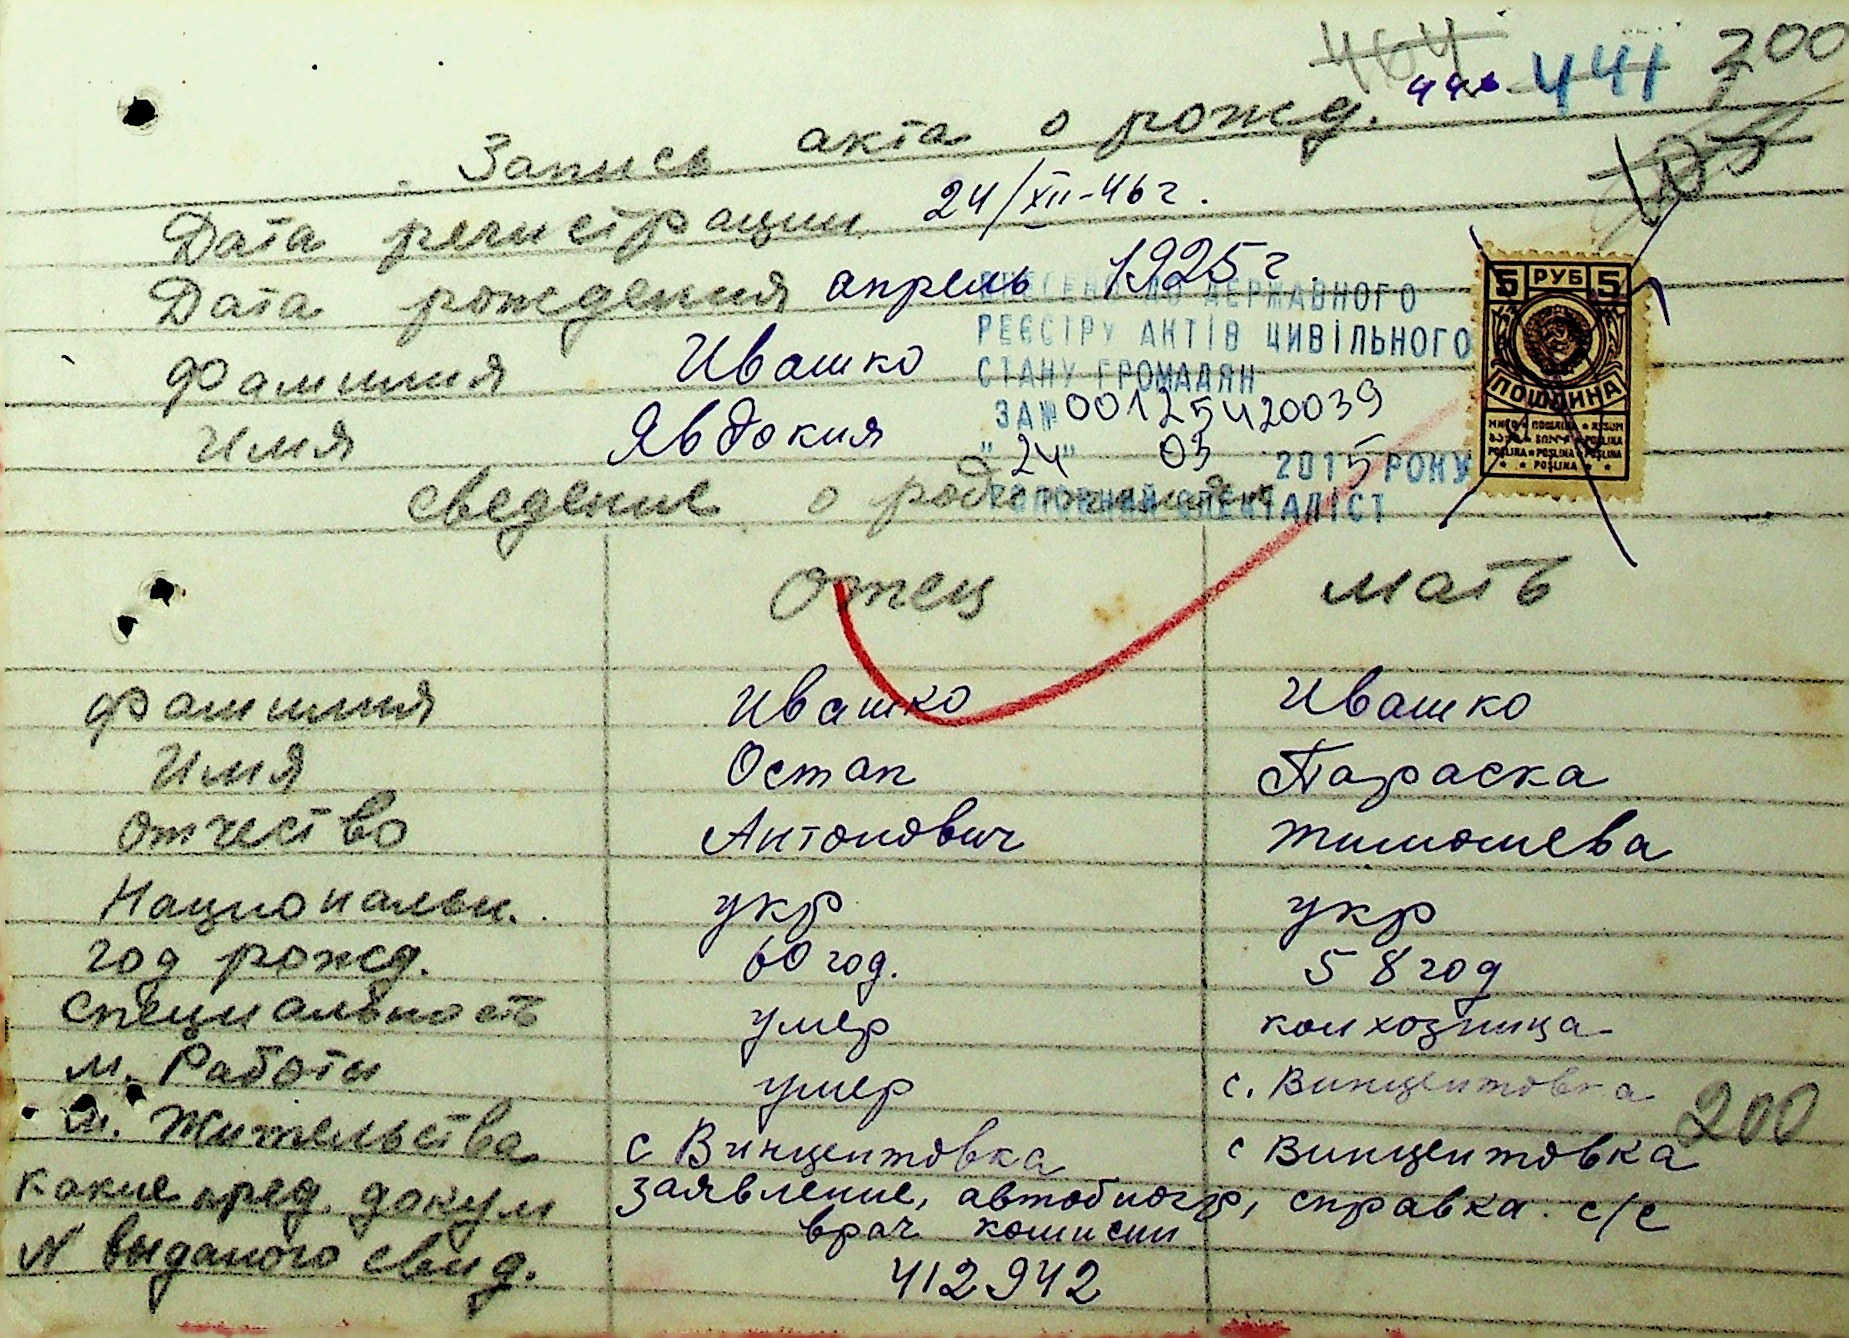 464 446 441 200
Запись акта о рожд.
Дата регистрации 24/XII-46 г.
Дата рождения апрель 1925 г.
Фамилия Ивашко
Имя Явдокия
ДЕРЖАВНОГО
РЕЄСТРУ АКТІВ ЦИВІЛЬНОГО
СТАНУ ГРОМАДЯН
ЗА № 00125420039
"24" 03 2015 РОКУ
ГОЛОВНИЙ СПЕЦІАЛІСТ
5 РУБ 5
ПОШЛИНА
POŠLINA
сведение о родителях
Отец Мать
Фамилия Ивашко Ивашко
Имя Остап Параска
Отчество Антонович Тимошева
Национальн. укр укр
год рожд. 60 год. 58 год
специальность умер колхозница
м. Работы умер с. Винцентовка
м. Жительства с Винцентовка с Винцентовка
200
какие пред. докум заявление, автобиогр, справка с/с
врач комисии
N выданого свид. 412942